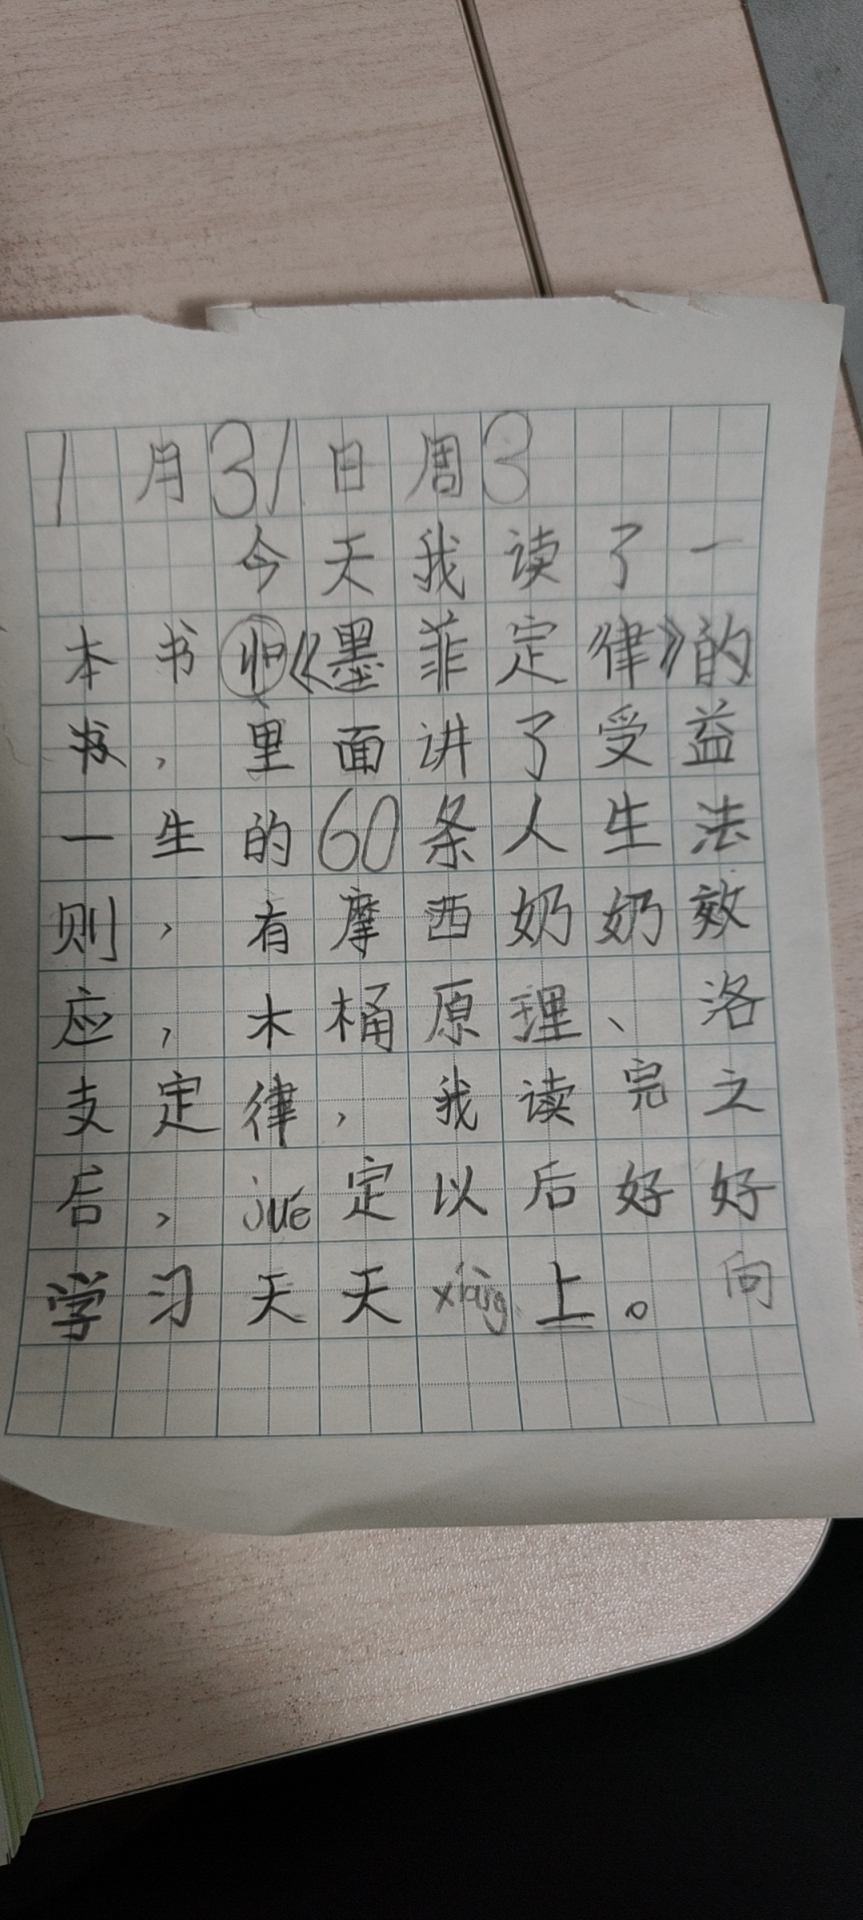 1月31日周3
今天我读了一
本书《墨菲定律》的
书，里面讲了受益
一生的60条人生法
则，有摩西奶奶效
应，木桶原理、洛
支定律，我读完之
后，jué定以后好好
学习天天xiàng上。向